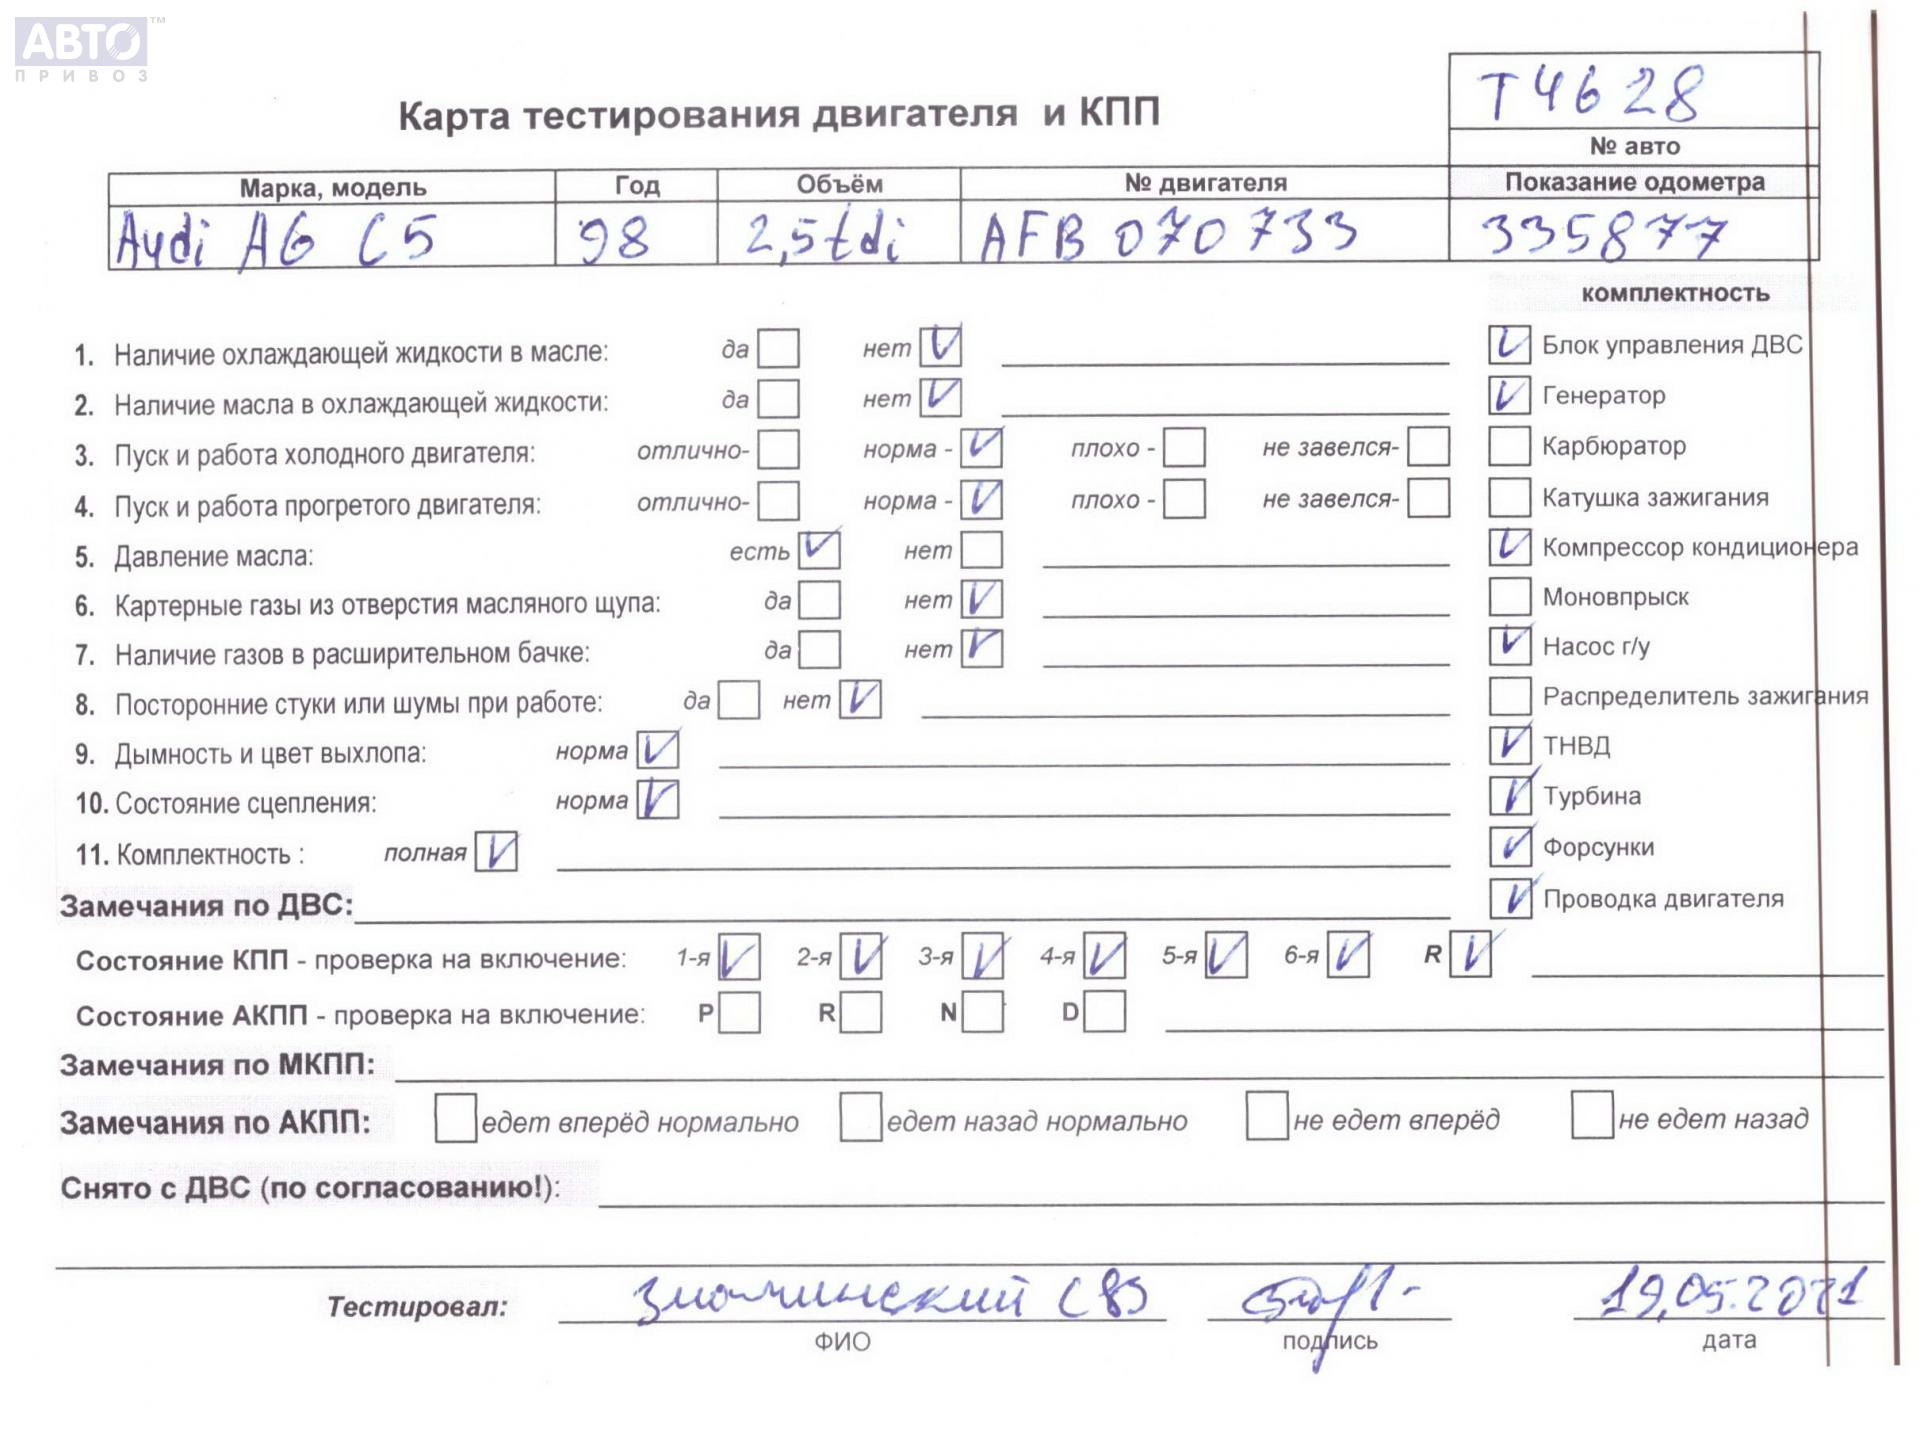 АВТО™
ПРИВОЗ
Т4628
Карта тестирования двигателя и КПП
№ авто
Марка, модель Год Объём № двигателя Показание одометра
Audi A6 C5 98 2,5tdi AFB 070733 335877
комплектность
1. Наличие охлаждающей жидкости в масле: да нет V V Блок управления ДВС
2. Наличие масла в охлаждающей жидкости: да нет V V Генератор
3. Пуск и работа холодного двигателя: отлично- норма - V плохо - не завелся- Карбюратор
4. Пуск и работа прогретого двигателя: отлично- норма - V плохо - не завелся- Катушка зажигания
5. Давление масла: есть V нет V Компрессор кондиционера
6. Картерные газы из отверстия масляного щупа: да нет V Моновпрыск
7. Наличие газов в расширительном бачке: да нет V V Насос г/у
8. Посторонние стуки или шумы при работе: да нет V Распределитель зажигания
9. Дымность и цвет выхлопа: норма V V ТНВД
10. Состояние сцепления: норма V V Турбина
11. Комплектность : полная V V Форсунки
Замечания по ДВС: V Проводка двигателя
Состояние КПП - проверка на включение: 1-я V 2-я V 3-я V 4-я V 5-я V 6-я V R V
Состояние АКПП - проверка на включение: P R N D
Замечания по МКПП:
Замечания по АКПП: едет вперёд нормально едет назад нормально не едет вперёд не едет назад
Снято с ДВС (по согласованию!):
Тестировал: 19.05.2021
ФИО подпись дата